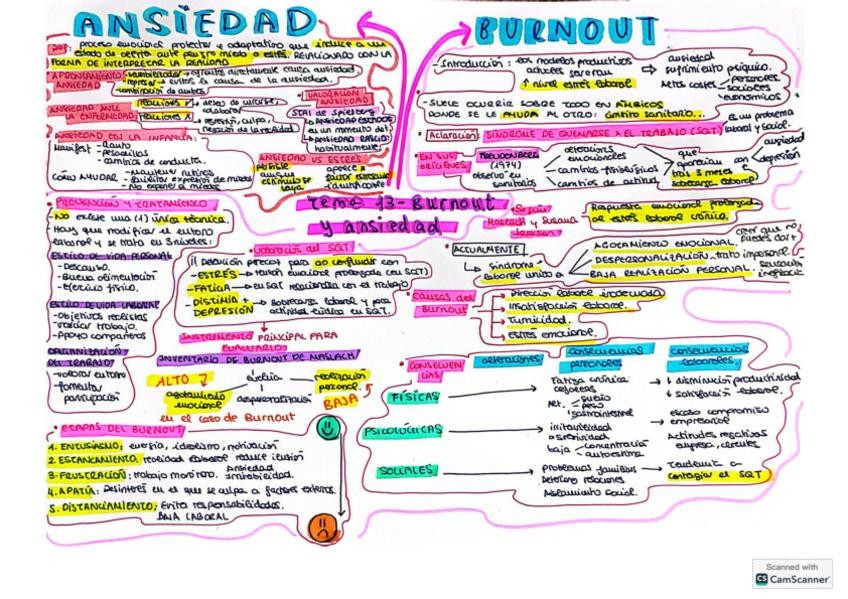 ANSIEDAD
DEF: proceso emocional protector y adaptativo que induce a un
estado de alerta ante peligro miedo o estrés. RELACIONADO CON LA
FORMA DE INTERPRETAR LA REALIDAD
AFRONTAMIENTO
ANSIEDAD
causa ansiedad
evitas la causa de la ansiedad.
combinación de ambas
ANSIEDAD ANTE
LA ENFERMEDAD
REACCIONES
deseo de curarse,
colaborar
REACCIONES
negación de la realidad
VALORACIÓN
ANSIEDAD
STAI de Spielberg
ANSIEDAD ESTADO
en un momento det.
ANSIEDAD RASGO
habitualmente
ANSIEDAD EN LA INFANCIA:
Manifest - llanto
pesadillas
- cambios de conducta.
CÓMO AYUDAR
- Mantener rutinas
- facilitar expresión de miedos
ANSIEDAD VS ESTRÉS
persiste
aunque
estímulo se
vaya
aparece x
factor estresante
identificable
Tema 13- Burnout
y ansiedad
PREVENCIÓN Y TRATAMIENTO
NO existe una (1) única técnica.
Hay que modificar el entorno
laboral y se trata en 3 niveles:
ESTILO DE VIDA PERSONAL
- Descanso.
- Buena alimentación
- Ejercicio físico.
ESTILO DE VIDA LABORAL
- Objetivos realistas
- variar trabajo.
- Apoyo compañeros
ORGANIZACIÓN
DEL TRABAJO
- valorar entorno
- fomentar
participación
Valoración del SQT
(! Detección precoz) para no confundir con
- ESTRÉS → tensión emocional prolongada (en SQT)
- FATIGA → en SQT relacionada con el trabajo
- DISTIMIA +
DEPRESIÓN
→ sobrecarga laboral y para
actividad lúdica en SQT.
INSTRUMENTO PRINCIPAL PARA
EVALUARLO
INVENTARIO DE BURNOUT DE MASLACH
ALTO
evalúa
agotamiento
emocional
despersonalización
realización
personal.
BAJA
en el caso de Burnout
ETAPAS DEL BURNOUT
1. ENTUSIASMO: energía, idealismo, motivación
2. ESTANCAMIENTO: realidad laboral reduce ilusión
3. FRUSTRACIÓN: trabajo monótono. Ansiedad
irritabilidad.
4. APATÍA: Desinterés en el que se culpa a factores externos.
5. DISTANCIAMIENTO: Evita responsabilidades.
BAJA LABORAL
BURNOUT
Introducción: los modelos productivos
actuales generan
↑ nivel estrés laboral
ansiedad
sufrimiento psíquico.
Altos costes
personales
sociales
económicos
- SUELE OCURRIR SOBRE TODO EN ÁMBITOS
DONDE SE LE AYUDA AL OTRO: ámbito sanitario...
Aclaración
SÍNDROME DE QUEMARSE X EL TRABAJO (SQT)
Es un problema
laboral y social.
EN SUS
ORÍGENES
FREUDENBERG
(1974)
observó en
sanitarios
alteraciones
emocionales
cambios de actitud
que
aparecían con
tras 3 meses
sobrecarga laboral
ansiedad
+
depresión
Según
Maslach y Susana
Jackson
Respuesta emocional prolongada
al estrés laboral crónico.
ACTUALMENTE
Síndrome
laboral unido a
AGOTAMIENTO EMOCIONAL.
DESPERSONALIZACIÓN. trato impersonal.
BAJA REALIZACIÓN PERSONAL.
creer que no
puedes dar +
sensación
ineficacia
Causas del
Burnout
Dirección laboral inadecuada
Insatisfacción laboral.
Tumicidad.
Estrés emocional.
CONSECUEN
CIAS
alteraciones
consecuencias
personales
consecuencias
laborales.
FÍSICAS
Fatiga crónica
cefaleas
Alt.
sueño
peso
gastrointestinal
↓ disminución productividad
↓ satisfacción laboral.
PSICOLÓGICAS
irritabilidad
agresividad
baja
concentración
autoestima
escaso compromiso
empresarial
Actitudes negativas
empresa, clientes
SOCIALES
problemas familias
Deterioro relaciones
Aislamiento social.
Tendencia a
contagiar el SQT
Scanned with
CS CamScanner